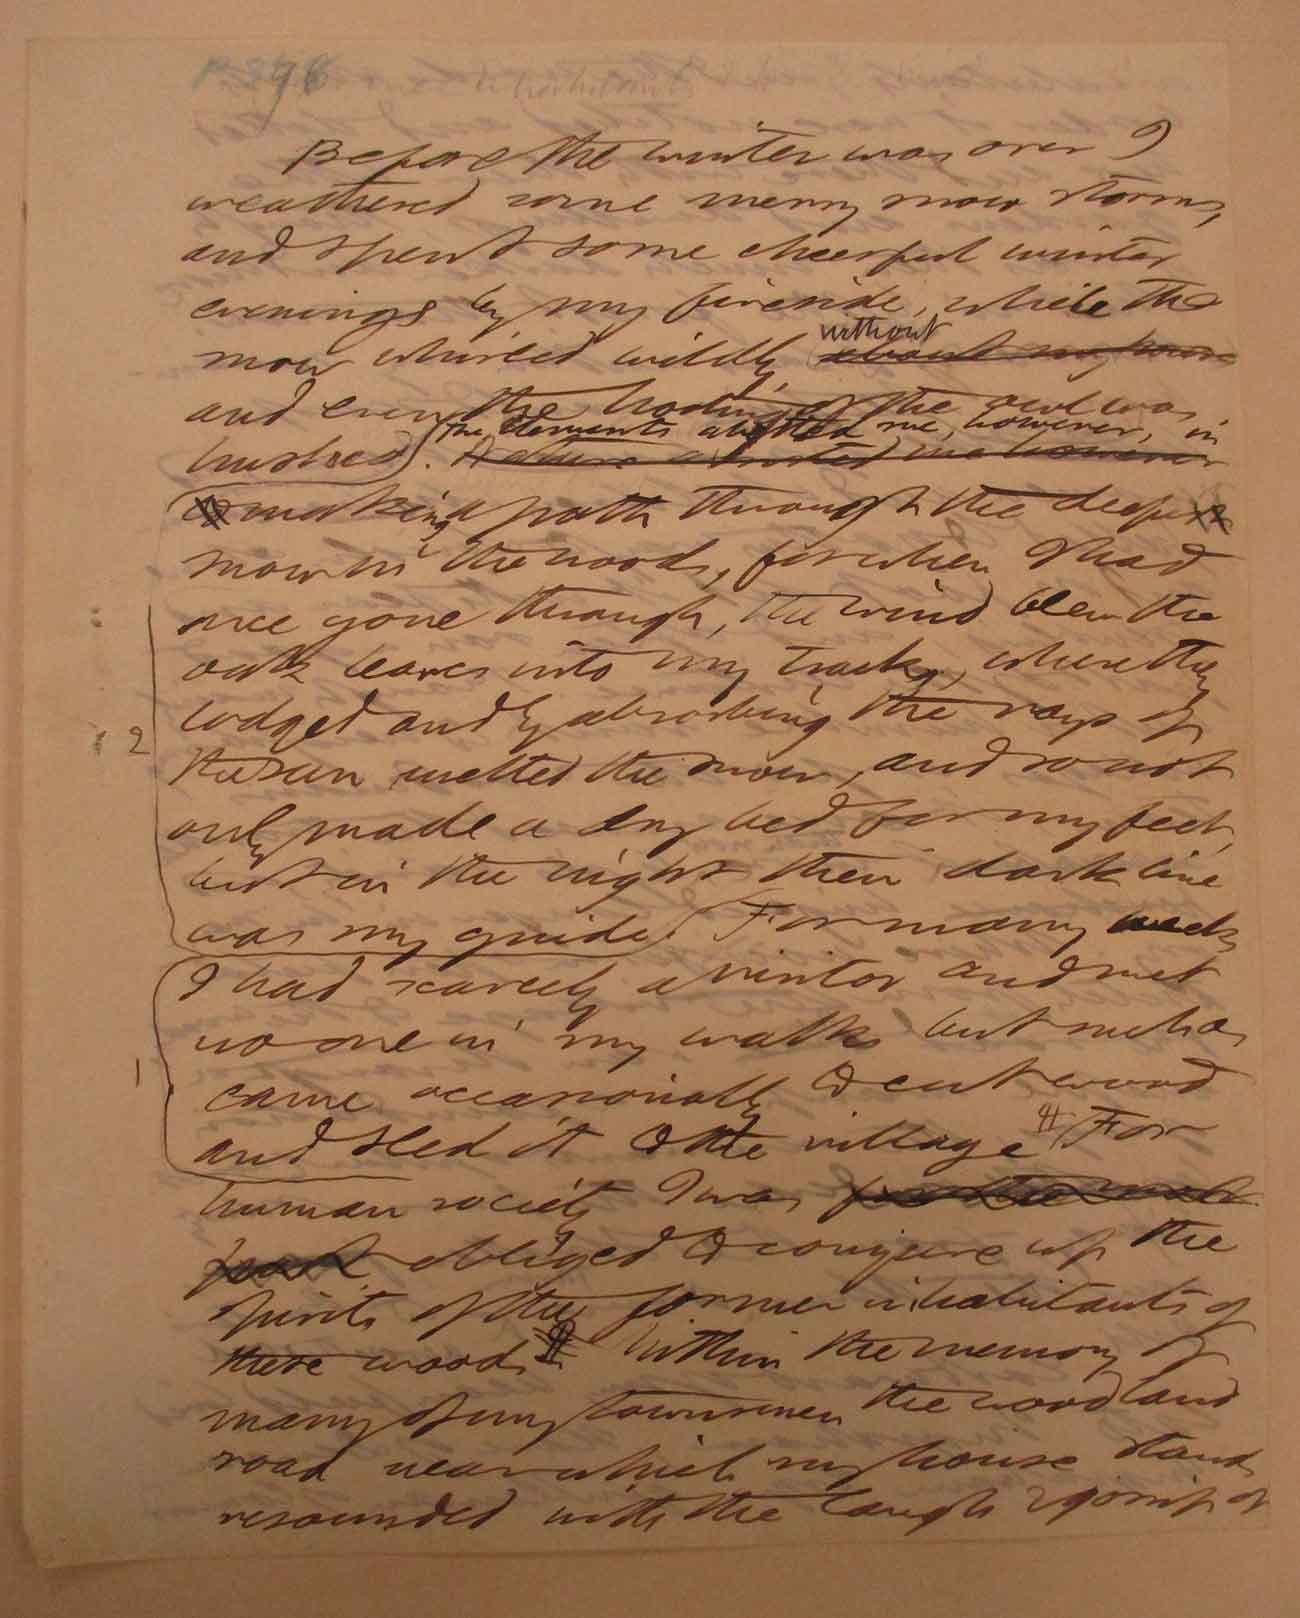 Before the winter was over I
weathered some merry snow storms,
and spent some cheerful winter
evenings by my fireside, while the
without
snow whirled wildly about my house
and even the hooting of the owl was
the elements abetted me, however, in
hushed. Nature abetted me however
making a path through the deepest
snow in the woods, for when I had
once gone through, the wind blew the
oak leaves into my tracks, where they
lodged and by absorbing the rays of
2
the sun melted the snow, and so not
only made a dry bed for my feet,
but in the night their dark line
was my guide. For many weeks
I had scarcely a visitor and met
no one in my walks but such as
1
came occasionally to cut wood
and sled it to the village For
human society I was for the most
part obliged to conjure up the
spirits of the former inhabitants of
these woods Within the memory of
many of my townsmen the woodland
road near which my house stands
resounded with the laugh & gossip of